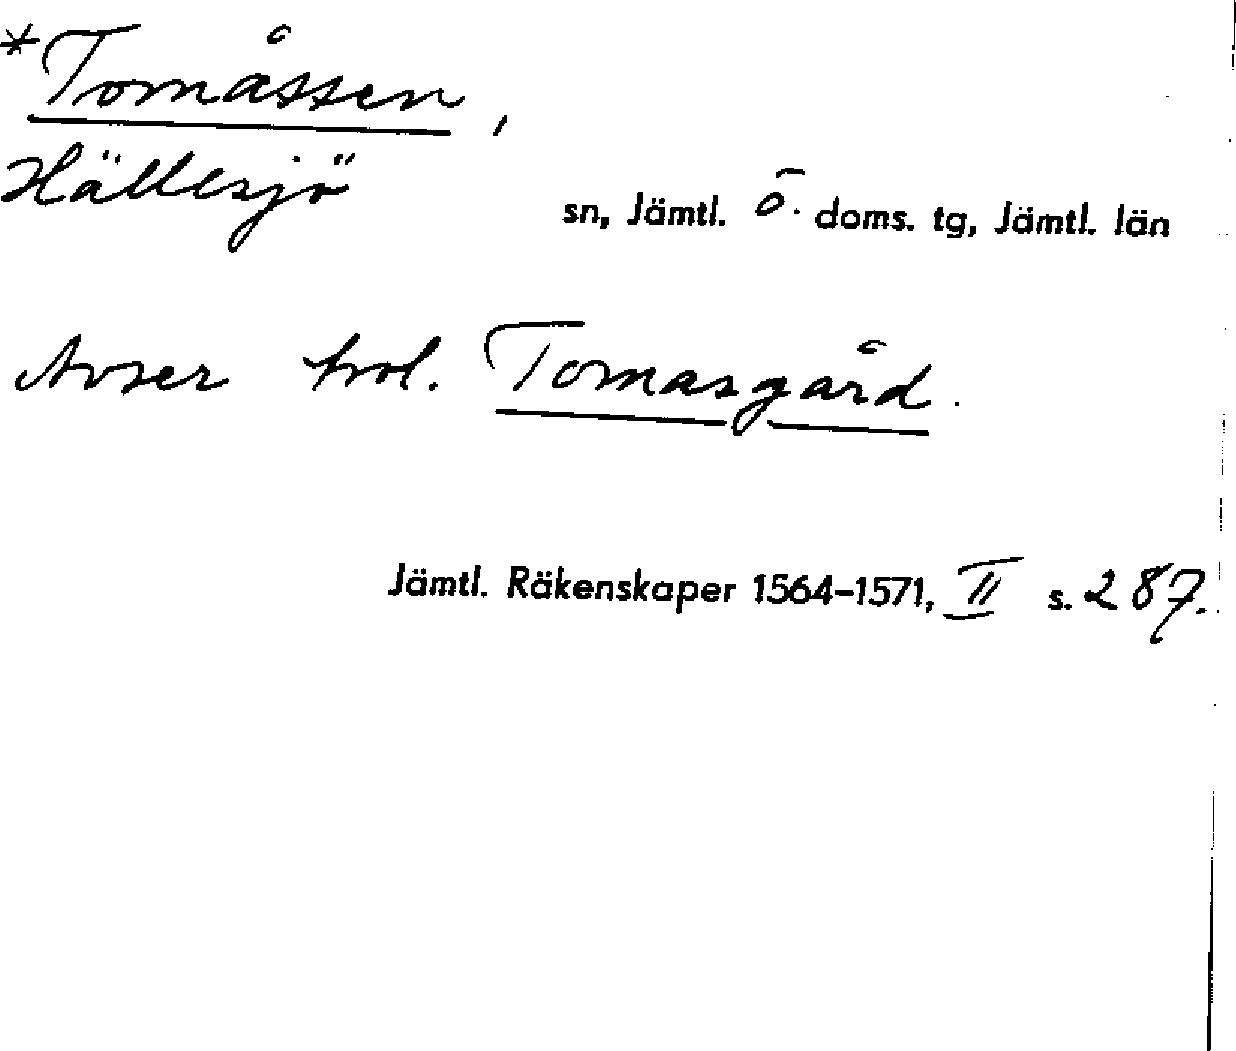 *Tomåssen,
Hällesjö sn, Jämtl. ö. doms. tg, Jämtl. län
Avser trol. Tomasgård.
Jämtl. Räkenskaper 1564–1571, II s. 287.